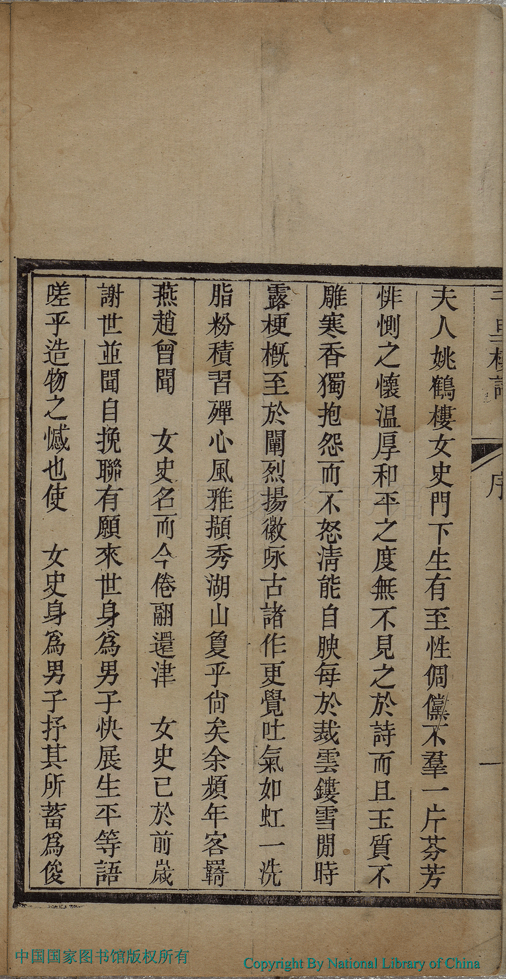 夫人姚鶴樓女史門下生有至性倜儻不羣一片芬芳
悱惻之懷溫厚和平之度無不見之於詩而且玉質不
雕寒香獨抱怨而不怒淸能自腴每於裁雲鏤雪閒時
露梗槪至於闡烈揚徽咏古諸作更覺吐氣如虹一洗
脂粉積習殫心風雅擷秀湖山敻乎尙矣余頻年客羇
燕趙曾聞 女史名而今倦翮還津 女史已於前歲
謝世並聞自挽聯有願來世身爲男子快展生平等語
嗟乎造物之憾也使 女史身爲男子抒其所蓄爲俊
中国国家图书馆版权所有
Copyright By National Library of China